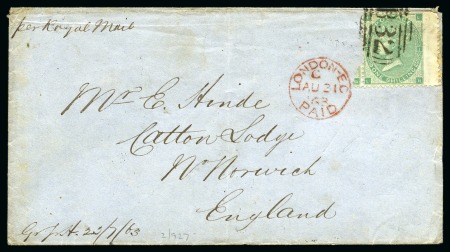 per Royal Mail
B32
LONDON E.C
C
AU 31
63
PAID
Mr E. Hinde
Catton Lodge
Nr. Norwich
England
22/7/63